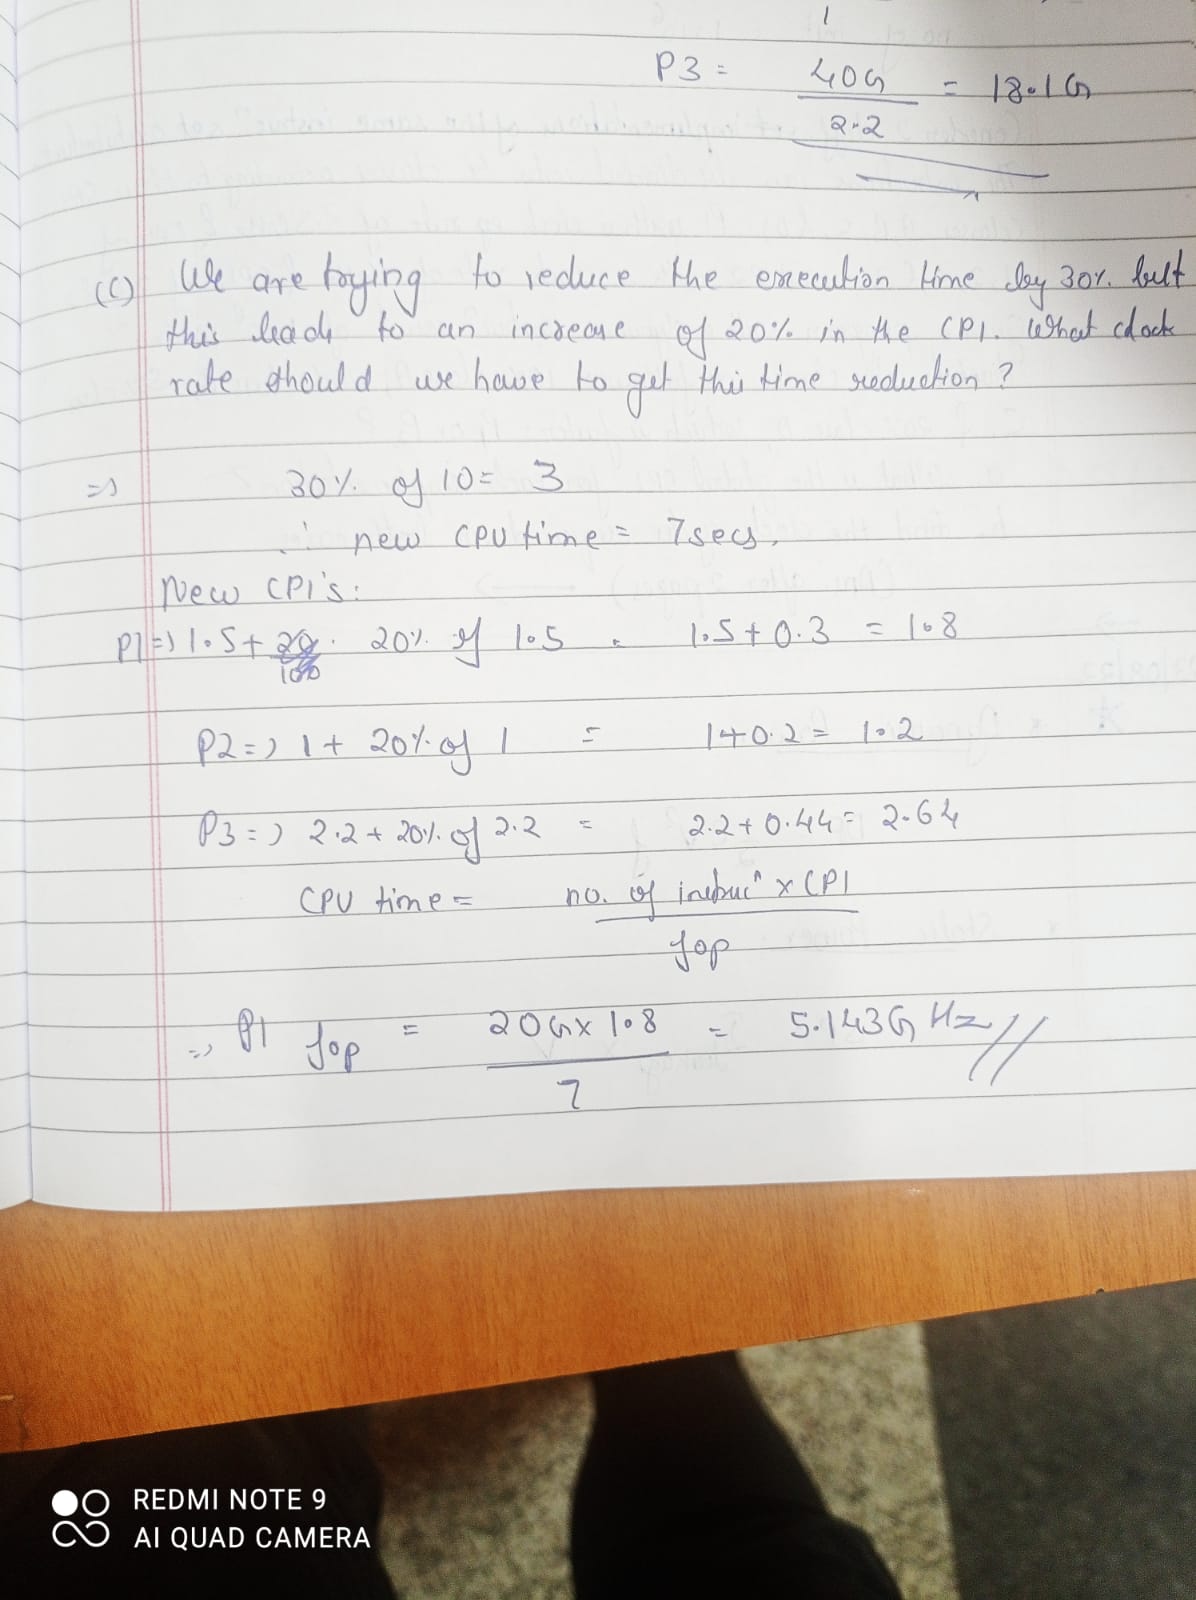 P3 = 40G / 2.2 = 18.1G
(C) We are trying to reduce the execution time by 30% but
this leads to an increase of 20% in the CPI. What clock
rate should we have to get this time reduction?
=> 30% of 10 = 3
∴ new CPU time = 7secs.
New CPI's:
P1 => 1.5 + 20% of 1.5 = 1.5 + 0.3 = 1.8
P2 => 1 + 20% of 1 = 1+0.2 = 1.2
P3 => 2.2 + 20% of 2.2 = 2.2 + 0.44 = 2.64
CPU time = no. of instrucⁿ x CPI / fop
=> P1 fop = 20G x 1.8 / 7 = 5.143G Hz //
REDMI NOTE 9
AI QUAD CAMERA